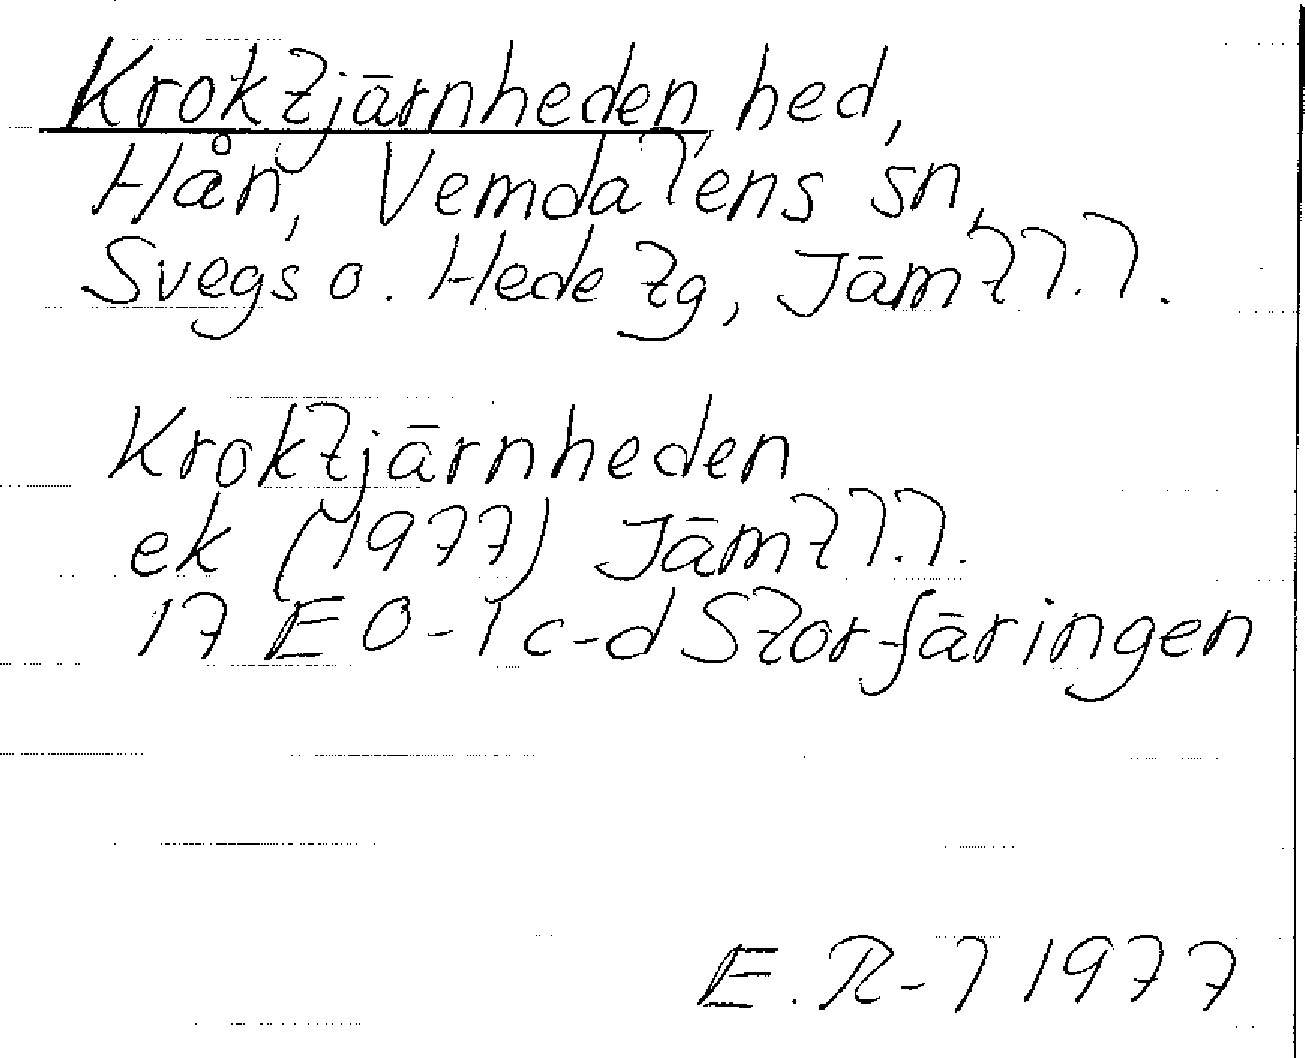 Kroktjärnheden, hed,
Hån, Vemdalens sn,
Svegs o. Hede tg, Jämtl.l.
Kroktjärnheden
ek (1977) Jämtl.l.
17 E 0-1 c-d Storfäringen
E. R-l 1977